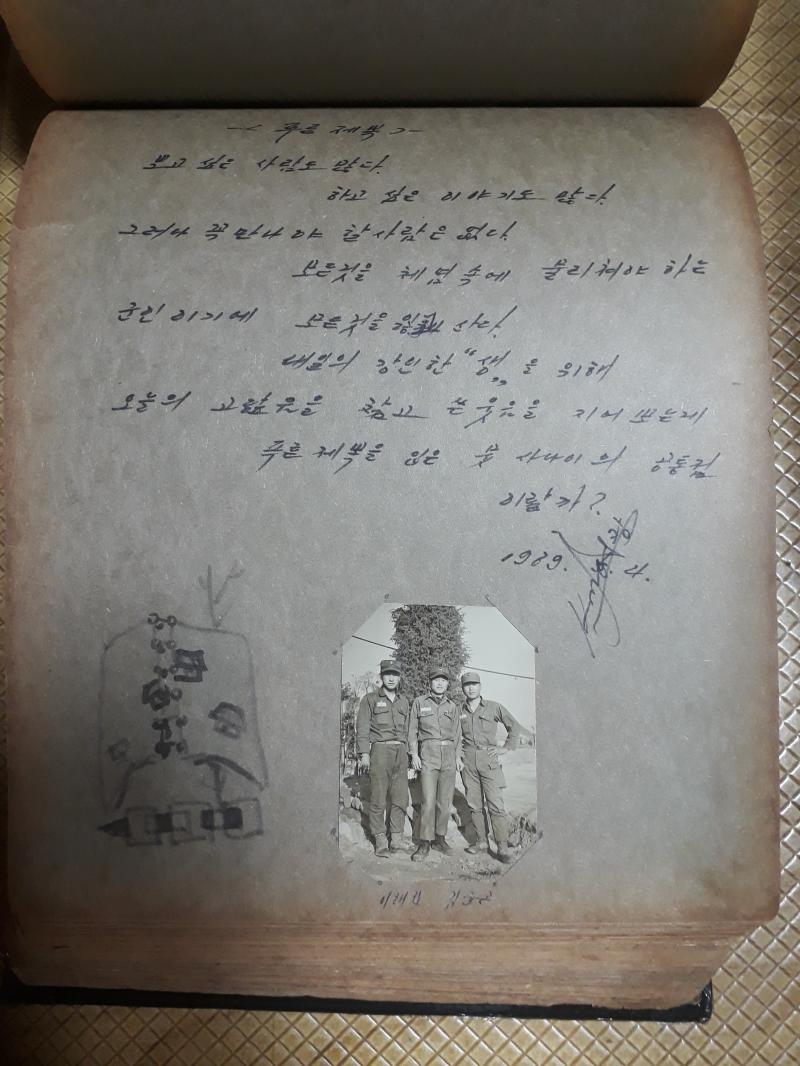 －< 푸른 제복 >－
보고 싶은 사람도 많다.
하고 싶은 이야기도 많다.
그러나 꼭 만나야 할 사람은 없다.
모든것을 체념속에 물리쳐야 하는
군인이기에 모든것을 산다.
내일의 강인한 "생„ 을 위해
오늘의 고달픔을 참고 쓴웃음을 지어 보는게
푸른 제복을 입은 뭇 사나이의 공통점
이랄까?
4.